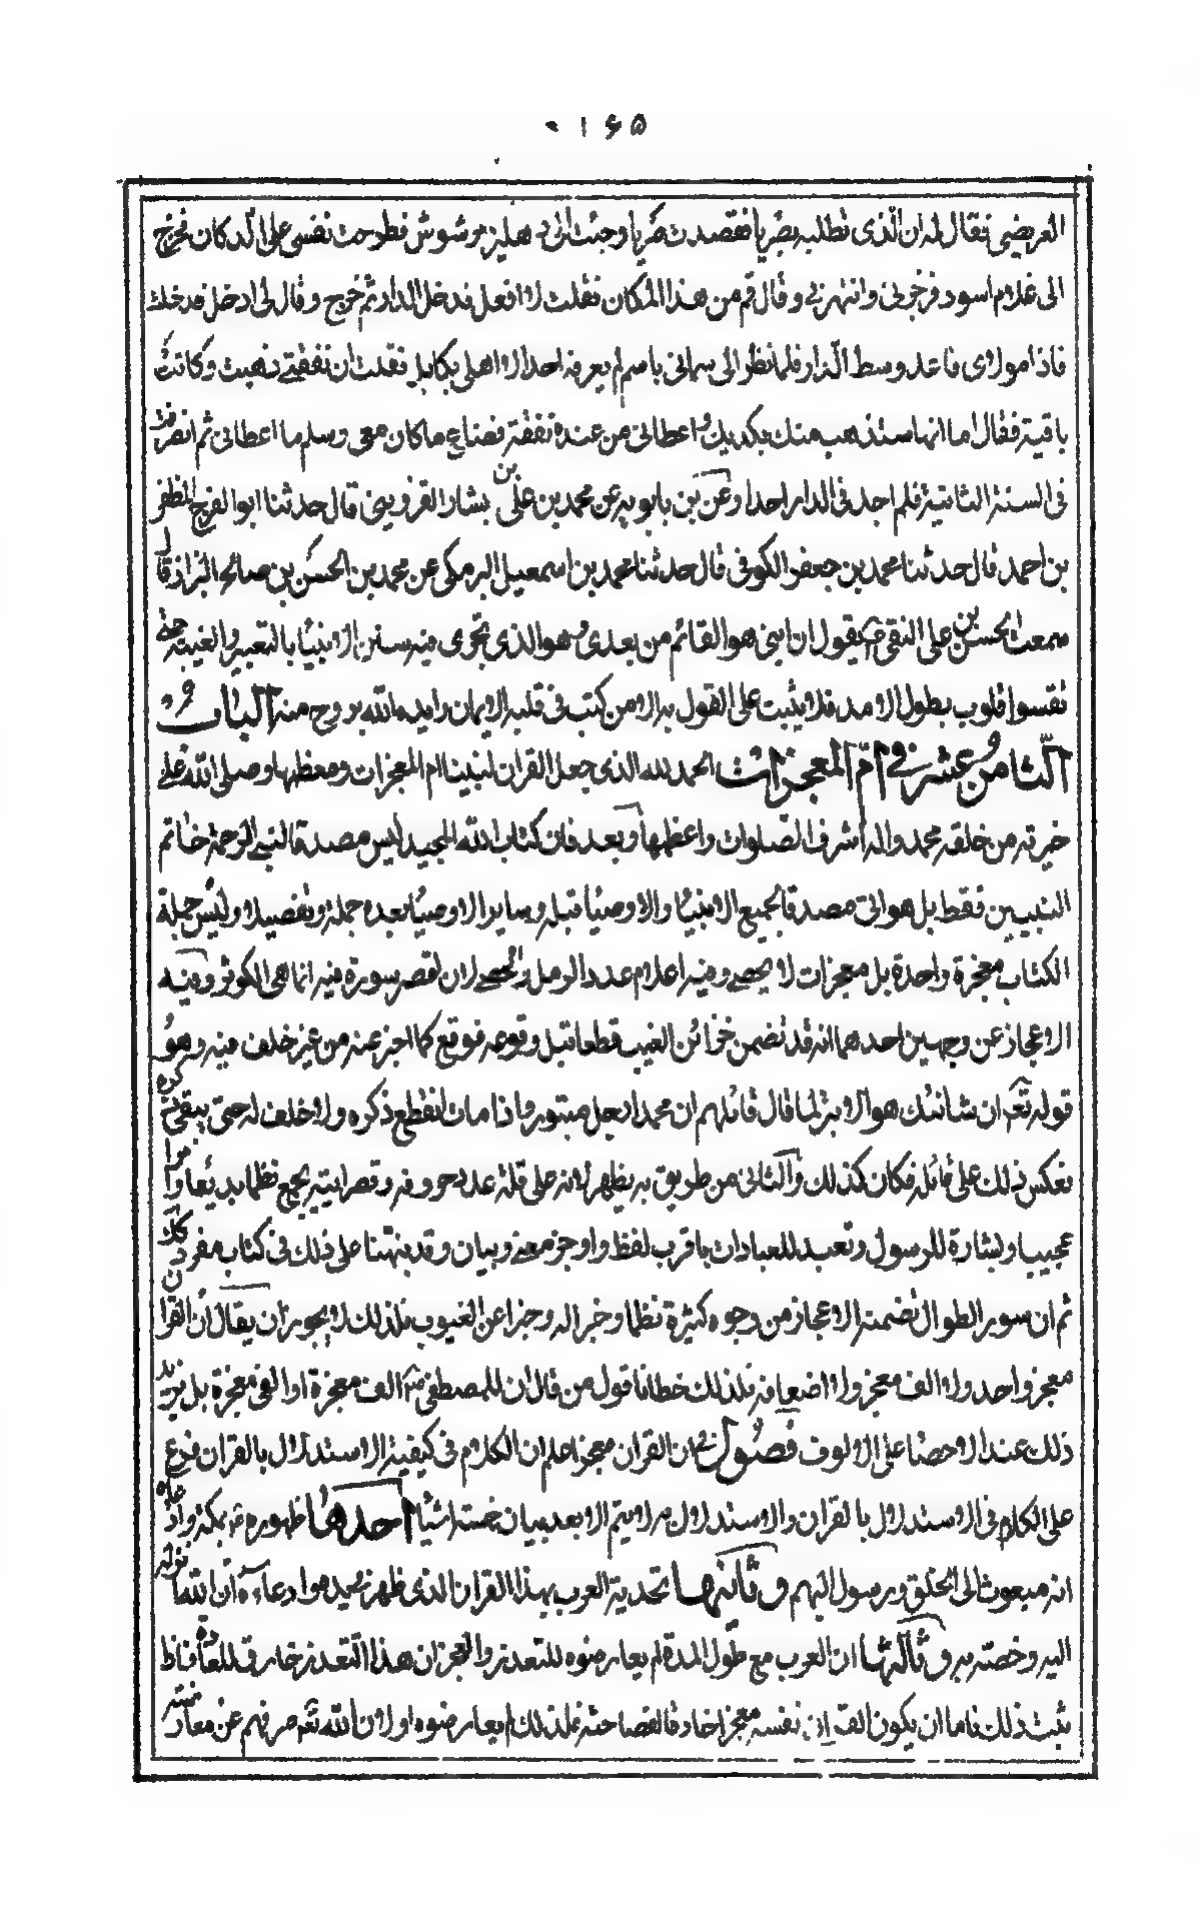 ۱۶۵
العريضى فقال له ان الّذى تطلبه بصريا فقصدت صريا وجئت الى دهليز مرشوش فطرحت نفسى على الّدكان فخرج
الى غلام اسود فزجرنى وانتهرنى وقال قم من هذا المكان فقلت لا افعل فدخل الدار ثم خرج وقال لى ادخل فدخلت
فاذا مولاى قاعد وسط الدار فلما نظر الى سمانى باسم لم يعرفه احد الا اهلى بكابل فقلت ان نفقتى ذهبت وكانت
باقية فقال اما انها ستذهب منك بكذبك واعطانى من عنده نفقة فضاع ما كان معى وسلم ما اعطانى ثم انصرفت
فى السنة الثانية فلم اجد فى الدار احدا وعن بن بابويه عن محمد بن على بن بشار القزوينى قال حدثنا ابو الفرج المظفر
بن احمد قال حدثنا محمد بن جعفر الكوفى قال حدثنا محمد بن اسمعيل البرمكى عن محمد بن الحسن بن صالح البزاز قال
سمعت الحسن بن على النقى يقول ان ابنى هو القائم من بعدى وهو الذى تجرى فيه سنن الانبياء بالتعمير والغيبة حتى
تقسوا قلوب بطول الامد فلا يثبت على القول به الا من كتب فى قلبه الايمان وايده الله بروح منه الباب
الثامن عشر فى امّ المعجزات الحمد لله الذى جعل القران لنبينا ام المعجزات ومعظمها وصلى الله على
خيرته من خلقه محمد واله اشرف الصلوات واعظمها وبعد فان كتاب الله المجيد ليس مصدقا لنبى الرحمة خاتم
النبيين فقط بل هو الى مصدقا لجميع الانبياء والاوصياء قبله وساير الاوصياء بعده جملة وتفصيلا وليس جملة
الكتاب معجزة واحدة بل معجزات لا يحصى وفيه اعلام عدد الرمل والحصى لان لقصر سورة فيه انما هى الكوثر وفيه
الاعجاز عن وجهين احدهما انه قد تضمن خزائن الغيب قطعا قبل وقوعه فوقع كما اخبر عنه من غير خلف فيه وهو
قوله تعه ان شانئك هو الابتر لما قال قائلهم ان محمدا رجل مبتور فاذا مات انقطع ذكره ولا خلف له حتى يبقى ذكره
فعكس ذلك على قائله فكان كذلك والثانى من طريق به يظهر لانه على قلة عدد حروفه وقصر ايته يجمع نظما بديعا وامرا
عجيبا وبشارة للرسول وتعبد للعبادات باقرب لفظ واوجز معنى وبيان وقد نبهتنا على ذلك فى كتاب مفرد كك
ثم ان سور الطوال تضمنت الاعجاز من وجوه كثيرة نظما وخبرا له وخبرا عن الغيوب فلذلك لا يجوز ان يقال ان القران
معجز واحد ولا الف معجز ولا اضعافه فلذلك خطانا قول من قال ان للمصطفى ص الف معجزة او الفى معجزة بل يزيد
ذلك عند الاحصاء على الالوف فصول فى ان القران معجز اعلم ان الكلام فى كيفية الاستدلال بالقران فرع
على الكلام فى الاستدلال بالقران والاستدلال به لا يتم الا بعد بيان خمسة اشياء احدها ظهوره ص بمكة وادعاه
انه مبعوث الى الخلق ورسول اليهم وثانيها تحديه العرب بهذا القران الذى ظهر بيده وادعاءه ان الله انزله
اليه وخصته به وثالثها ان العرب مع طول المدة لم يعارضوه للتعذر والعجز ان هذا التعذر خارق للعادة فاذا
ثبت ذلك فاما ان يكون القران نفسه معجزا خارقا لفصاحته فلذلك لم يعارضوه او لان الله تعه صرفهم عن معارضته